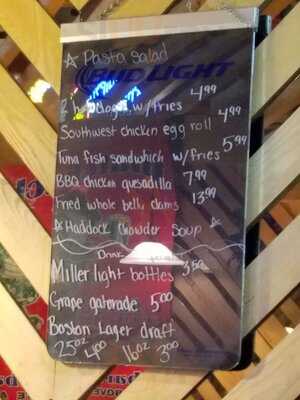 ☆ Pasta salad
BUD LIGHT
2 hot dogs w/fries 4.99
Southwest chicken egg roll 4.99
Tuna fish sandwhich w/fries 5.99
BBQ chicken quesadilla 7.99
Fried whole belly clams 13.99
☆ Haddock Chowder Soup ☆
Drink
Miller light bottles 3.50
Grape gatorade 5.00
Boston Lager draft
25oz 4.00 16oz 3.00